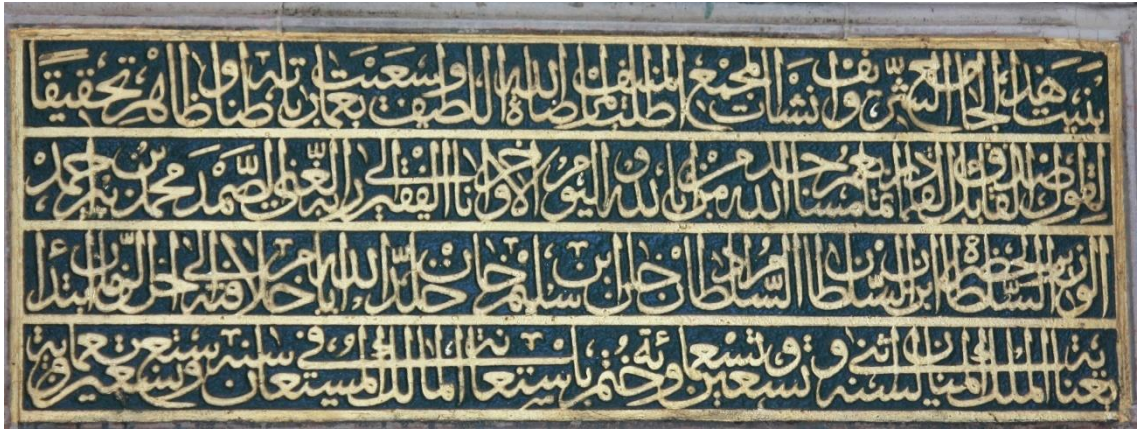 بنيت هذا الجامع الشريف وانشات المجمع المنيف طلبا لمرضاة الله اللطيف وسعيت بعمارته باطنا وظاهر تحقيقا
لقول اصدق القايلين القادر انما يعمر مساجد الله من امن بالله واليوم الاخر وانا الفقير الى ربه الغني الصمد محمد بن پير احمد
الوزير لحضرة السلطان ابن السلطان السلطان مراد خان ابن سليم خان خلد الله ايام خلافته الى اخر الزمان ابتدئ
بعناية الملك المنان لسنة اثنى وتسعين وتسعمائة وختم باستعانة المالك المستعان في سنة ست وتسعين وتسعماية